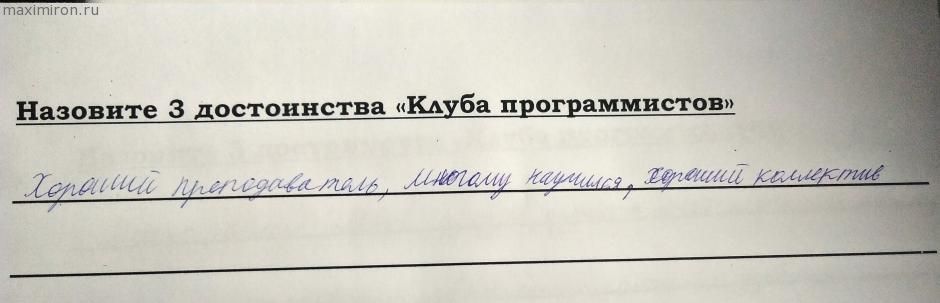 maximiron.ru
Назовите 3 достоинства «Клуба программистов»
Хороший преподаватель, многому научился, хороший коллектив